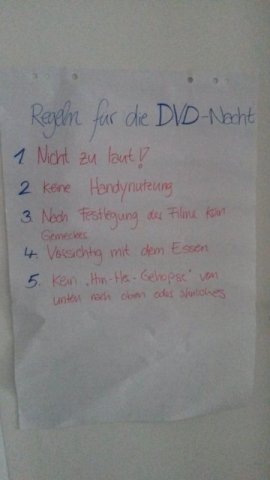 Regeln für die DVD-Nacht
1 Nicht zu laut!
2 keine Handynutzung
3. Nach Festlegung des Films kein
Gemecker
4. Vorsichtig mit dem Essen
5. Kein "Hin-Her-Gehopse" von
unten nach oben oder ähnliches